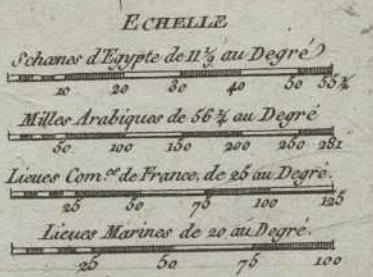 ECHELLE
Schœnes d'Egypte de 11 1/9 au Degré
10 20 30 40 50 55 1/2
Milles Arabiques de 56 1/4 au Degré
50 100 150 200 250 281
Lieues Com.es de France, de 25 au Degré.
25 50 75 100 125
Lieues Marines de 20 au Degré.
25 50 75 100